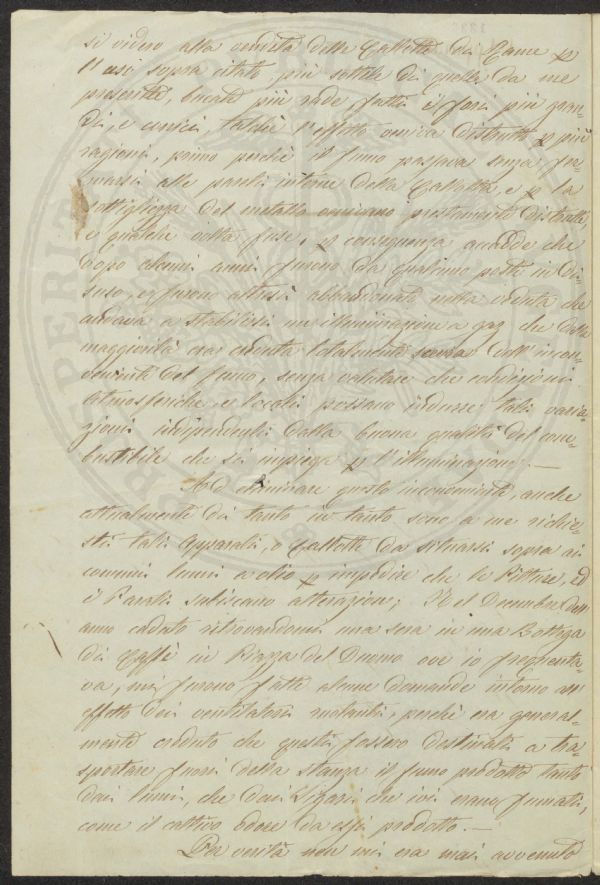 si videro alla vendita delle Callotte di Rame p
il usi sopra citato, più sottile di quella da me
prescritta, bucate più rade fatti i fori più gran-
di, e unici, talchè l'effetto veniva distrutto p più
ragioni, primo perchè il fumo passava senza fer-
marsi alle pareti interne della Callotta, e p la
sottigliezza del metallo venivano prestamente distrutti,
e qualche volta fuse, p conseguenza accadde che
dopo alcuni anni furono da qualcuno poste in di-
suso, e furono altresì abbandonate nella veduta che
andava a stabilirsi un illuminazione a gaz che dalla
maggiorità era creduta totalmente scevra dall'incon-
veniente del fumo, senza valutare che condizioni
atmosferiche e locali possano indurre tali varia-
zioni indipendenti dalla buona qualità del com-
bustibile che si impiega p l'illuminazione. —
Ad eliminare questo inconveniente, anche
attualmente di tanto in tanto sono a me richie-
sti tali apparati, o Callotte da situarsi sopra ai
comuni lumi a olio p impedire che le Pitture, ed
i Parati subiscano alterazione; Nel Decembre dell'
anno caduto ritrovandomi una sera in una Bottega
di Caffè in Piazza del Duomo ove io frequenta-
va, mi furono fatte alcune domande intorno all'
effetto dei ventilatori rotanti, perchè era general-
mente creduto che questi fossero destinati a tra-
sportare fuori della stanza il fumo prodotto tanto
dai lumi, che dai Sigari che ivi erano fumati,
come il cattivo odore da essi prodotto. —
Per verità non mi era mai avvenuto
PERIT